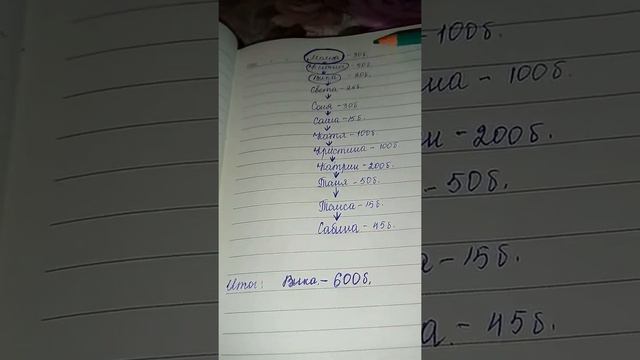 - 30б.
- 50б.
Вика - 80б.
Света - 25б.
Соня - 30б
Саша - 15б.
Катя - 100б.
Кристина - 100б
Катрин - 200б.
Таня - 50б.
Таиса - 15б.
Сабина - 45б.
Итог: Вика - 600б.
- 100б.
- 100б.
- 200б.
- 50б.
а - 15б.
а - 45б.